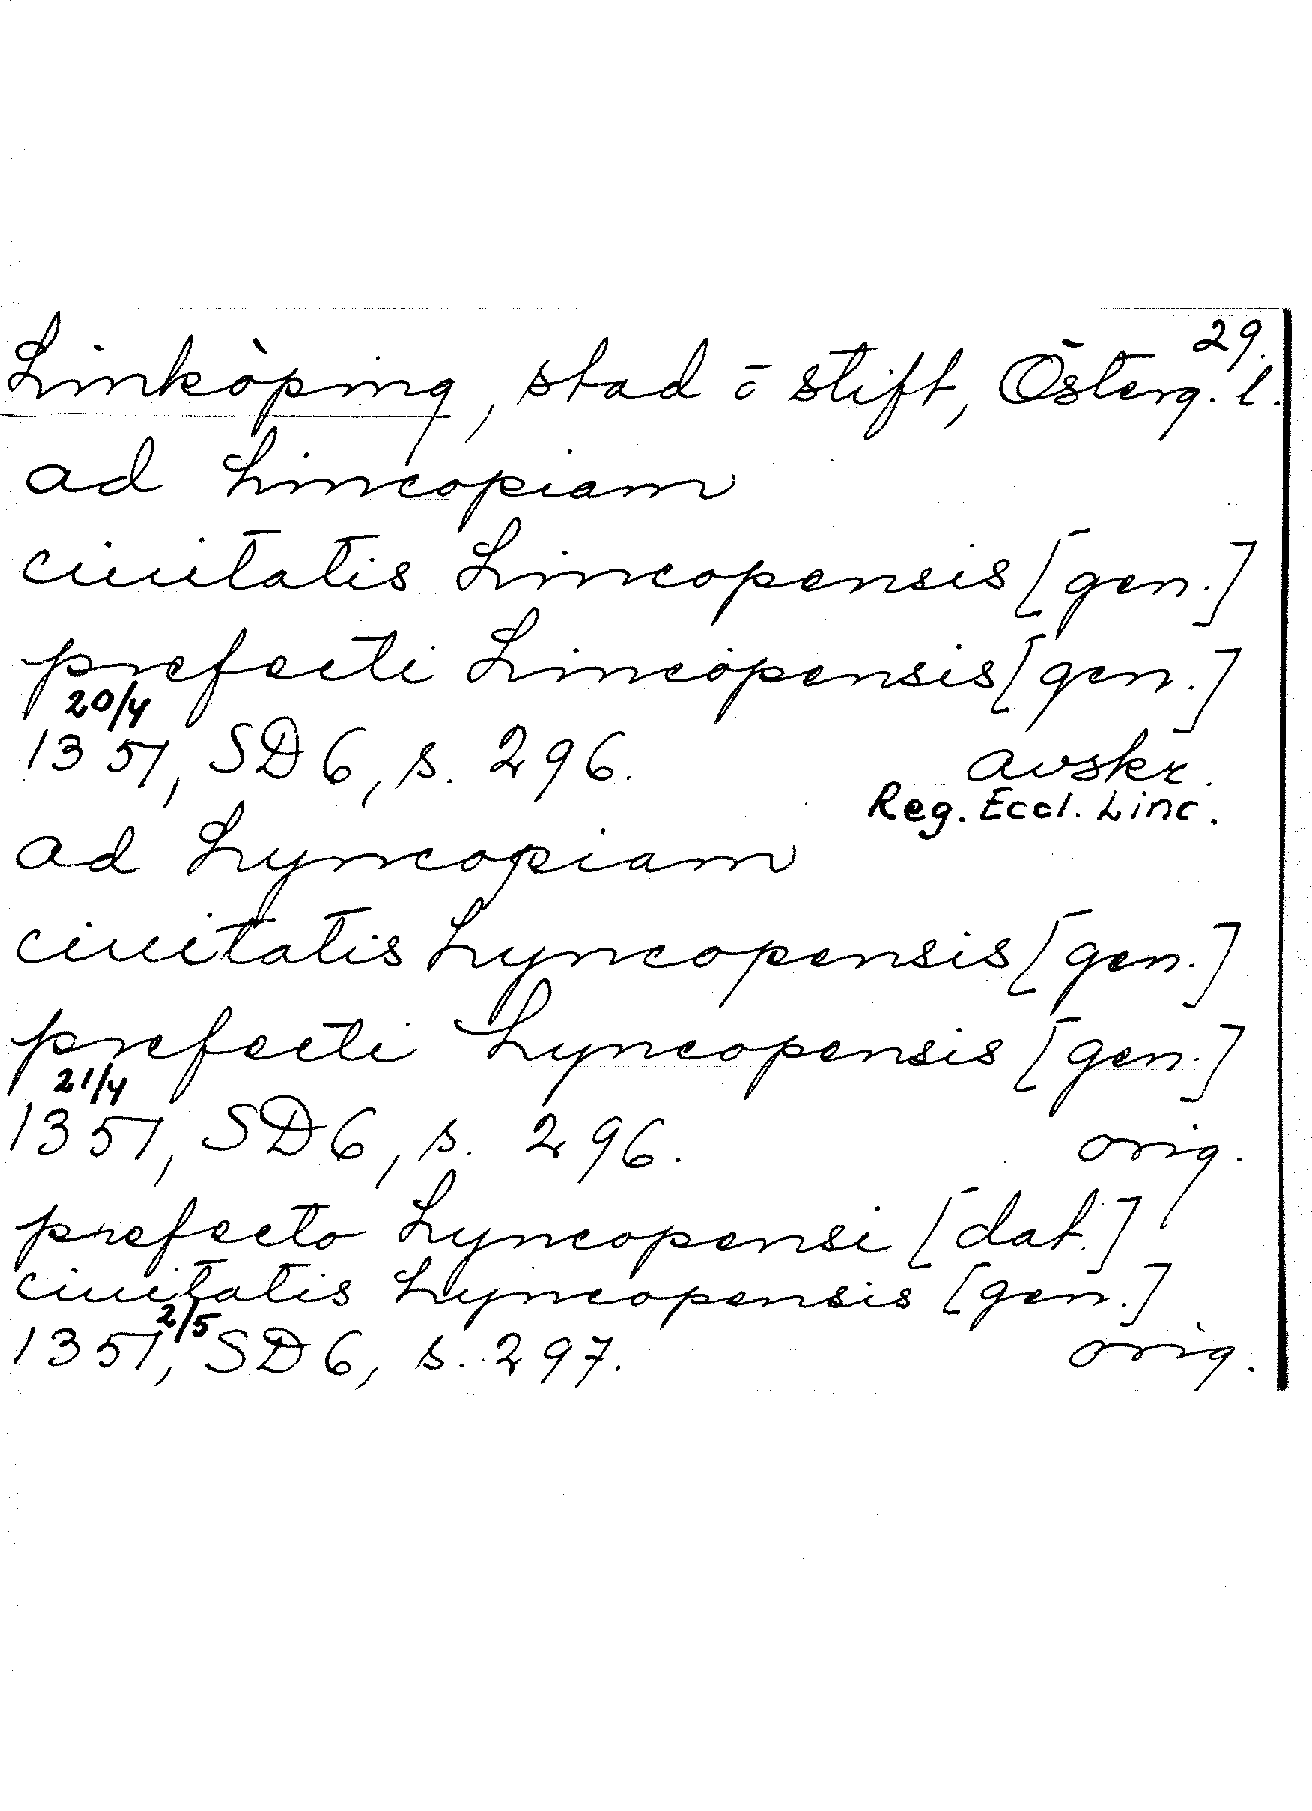 29.
Linköping, stad o stift, Österg. l.
ad Lincopiam
ciuitatis Lincopensis [gen.]
prefecti Lincopensis [gen.]
20/4
1351, SD 6, s. 296. avskr.
Reg. Eccl. Linc.
ad Lyncopiam
ciuitatis Lyncopensis [gen.]
prefecti Lyncopensis [gen.]
21/4
1351, SD 6, s. 296. orig.
prefecto Lyncopensi [dat.]
ciuitatis Lyncopensis [gen.]
2/5
1351, SD 6, s. 297. orig.